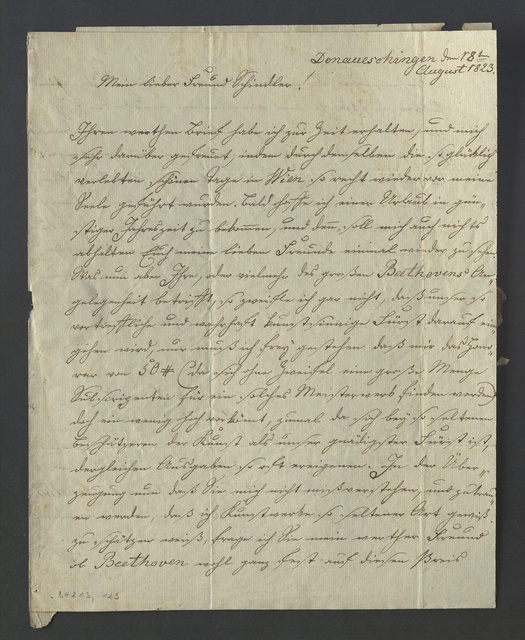 Donaueschingen den 18ten
August 1823.
Mein lieber Freund Schindler!
Ihren werthen Brief habe ich zur Zeit erhalten, und mich
sehr darüber gefreuet, indem durch denselben die so glücklich
verlebten schönen Tage in Wien so recht wieder vor meine
Seele geführt wurden. Bald hoffe ich einen Urlaub in gün-
stiger Jahreszeit zu bekommen, und dann soll mich auch nichts
abhalten Euch meine lieben Freunde einmal wieder zu sehen.
Was nun aber Ihre, oder vielmehr des großen Beethovens An-
gelegenheit betrifft, so zweifle ich gar nicht, daß unser so
vortreffliche und wahrhaft kunstsinnige Fürst darauf ein-
gehen wird, nur muß ich frey gestehen daß mir das Hono-
rar von 50 # (da sich ohne Zweifel eine große Menge
Subscripenten für ein solches Meisterwerk finden werden)
doch ein wenig hoch vorkömt, zumal da sich bey so seltenen
Beschützeren der Kunst als unser gnädigster Fürst ist,
dergleichen Ausgaben so oft ereigenen. In der Über-
zeugung nun daß Sie mich nicht mißverstehen, und zutrau-
en werden, daß ich Kunstwerke so seltener Art gewiß
zu schätzen weiß, frage ich Sie mein werther Freund
ob Beethoven wohl ganz fest auf diesen Preis